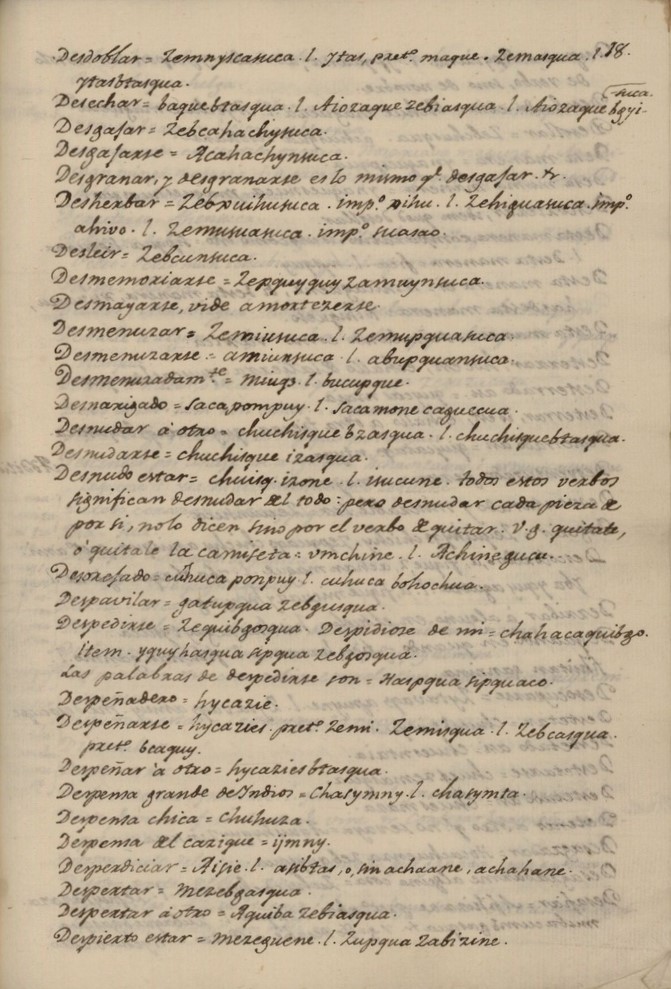 Desdoblar = Zemnyscasuca . l . ytas, pret.º maque . Zemasqua . l . 18.
ytasbtasqua .
Desechar = baquebtasqua . l . Aiozaque zebiasqua . l . Aiozaque bgyi-
suca .
Desgajar = Zebcahachysuca .
Desgajarse = Acahachynsuca .
Desgranar, y desgranarse es lo mismo q.e desgajar . &.
Desherbar = Zebxuihusuca . imp.º xihu . l . Zehiguasuca . imp.º
ahivo . l . Zemusuasuca . imp.º suasao .
Desleir = Zebcunsuca .
Desmemoriarse = Zepquyquy zamuynsuca .
Desmayarse, vide amortezerse .
Desmenuzar = Zemiusuca . l . Zemupquasuca .
Desmenuzarse = amiunsuca . l . abupquansuca .
Desmenuzadam.te = miuqs . l . bucupque .
Desnarigado = saca pompuy . l . sacamone caguecua .
Desnudar á otro = chuchisque bzasqua . l . chuchisquebtasqua .
Desnudarse = chuchisque izasqua .
Desnudo estar = chuisq. izone . l . isucune . todos estos verbos
significan desnudar del todo : pero desnudar cada pieza de
por si, no lo dicen sino por el verbo de quitar . V.g. quitate,
ó quitale la camiseta = vmchine . l . Achinegucu .
Desorejado = cuhuca ponpuy l . cuhuca bohochua .
Despavilar = gatupqua zebgusqua .
Despedirse = Zequibgosqua . Despidiose de mi = chahacaquibgo .
Item . yquyhasqua sipqua zebgosqua .
Las palabras de despedirse son = Haspqua sipquaco .
Despeñadero = hycazie .
Despeñarse = hycazies . pret.º zemi . Zemisqua . l . Zebcasqua .
pret.º beaquy .
Despeñar á otro = hycaziesbtasqua .
Despensa grande de Indios = Chasymny . l . chasymta .
Despensa chica = Chuhuza .
Despensa del cazique = ijmny .
Desperdiciar = Aisie . l . asibtas, o, sin achaane, achahane .
Despertar = mezebgasqua .
Despertar á otro = Aquiba zebiasqua .
Despierto estar = mezeguene . l . Zupqua zabizine .